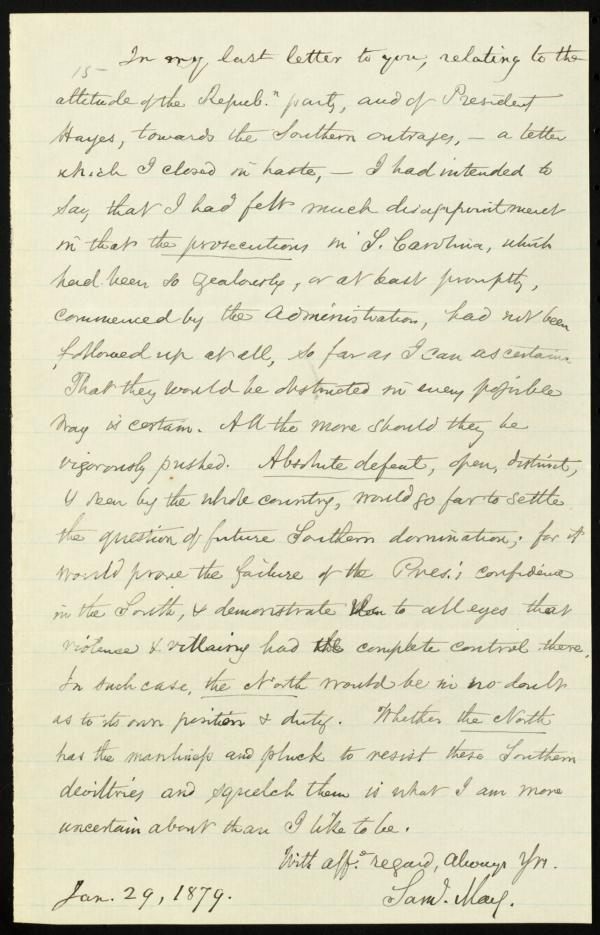 In my last letter to you, relating to the
15-
attitude of the Repub.n party, and of President
Hayes, towards the Southern outrages, — a letter
which I closed in haste, — I had intended to
say that I had felt much disappointment
in that the prosecutions in S. Carolina, which
had been so zealously, or at least promptly,
commenced by the Administration, had not been
followed up at all, so far as I can ascertain.
That they would be obstructed in every possible
way is certain. All the more should they be
vigorously pushed. Absolute defeat, open, distinct,
& seen by the whole country, would go far to settle
the question of future Southern domination; for it
would prove the failure of the Pres.'s confidence
in the South, & demonstrate to all eyes that
violence & villainy had the complete control there.
In such case, the North would be in no doubt
as to its own position & duty. Whether the North
has the manliness and pluck to resist these Southern
deviltries and squelch them is what I am more
uncertain about than I like to be.
With aff.e regard, always Yrs.
Jan. 29, 1879. Saml. May.